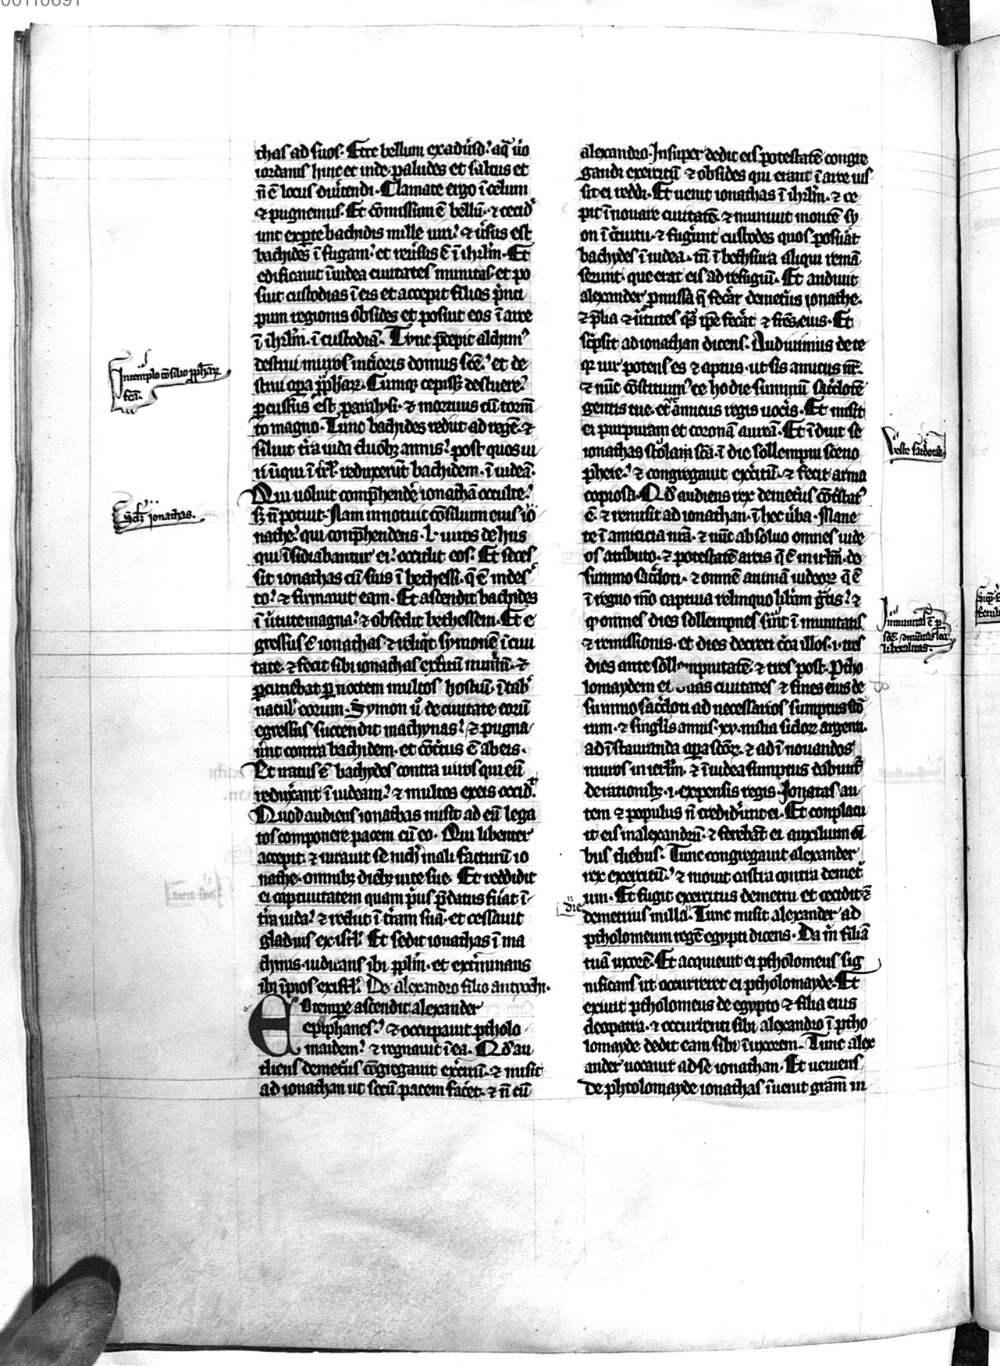 thas ad suos. Ecce bellum ex adũsõ. aq̃ ũo
iordanis hinc et inde paludes et saltus et
ñ ẽ locus diũtendi. Clamate ergo ĩ celum
⁊ pugnemus. Et cõmissum ẽ bellũ. ⁊ cecid̾
unt ex parte bachidis mille uiri. ⁊ ũsus est
bachides ĩ fugam. et reũsus ẽ ĩ ihrl̃m. Et
edificauit ĩ iudea ciuitates munitas. et po
suit custodias ĩ eis et accepit filios p̃nci
pum regionis obsides et posuit eos ĩ arce
ĩ ihrl̃m. ĩ custodiã. Tunc p̃cepit alchim᷒
destrui muros int̾ioris domus sc̃e. et de
strui oꝑa ꝓph̾aꝝ. Cumq̃ cepiss̃ destruere.
ꝑcussus est ꝑaralisi. ⁊ mortuus cũ torm̃
to magno. Tunc bachides rediit ad regẽ. ⁊
siluit t̾ra iuda duobꝫ annis. post quos ui
ri ĩiqui ĩ isrl̃ reduxerũt bachidem. ĩ iudeã.
Qui uoluit comp̃hende᷑ ionathã occulte.
sꝫ ñ potuit. Nam innotuit cõsilium eius io
nathe. qui conp̃hendens .l. uiros de hiis
qui ĩsidiabantur ei. occidit eos. Et seces
sit ionathas cũ suis ĩ bethessi. q̃ ẽ in des̾
to. ⁊ firmauit eam. Et ascendit bachides
ĩ ũtute magna. ⁊ obsedit bethessem. Et e
gressus ẽ ionathas. ⁊ reliq̃t symonẽ ĩ ciui
tate. ⁊ fecit sibi ionathas ex̾citũ
ꝑcutiebat ꝑ noctem multos hostiũ. ĩ tab̾
natul̾ eorum. Symon ũ de ciuitate eorũ
egressus succendit machinas. ⁊ pugna
ũnt contra bachidem. et cõt̾tus ẽ ab eis.
Et iratus ẽ bachydes contra uiros qui eũ
redux̾ant ĩ iudeam. ⁊ multos ex eis occid̾.
Quod audiens ionathas misit ad eũ lega
tos componere pacem cũ eo. Qui libenter
accepit. ⁊ iurauit se nich̾ mali facturũ io
nathe. omnibꝫ diebꝫ uite sue. Et reddidit
ei captiuitatem quam p̃us p̃datus fũat ĩ
t̾ra iuda. ⁊ rediit ĩ t̾ram suã. et cessauit
gladius ex isrl̃. Et sedit ionathas ĩ ma
chmis. iudicans ibi pp̃lm. et ext̾minans
ibi ĩpios ex isrl̃. De alexandro filio antyochi.
Eo tempe ascendit alexander
epiphanes. ⁊ occupauit ptholo
maidem. ⁊ regnauit ĩ ea. Qd̾ au
diens demet̾us cõgregauit ex̾citũ. ⁊ misit
ad ionathan ut secũ pacem face᷑t. ⁊ ñ cũ
In templo cõsilio ꝓph̾aꝝ
fcĩ.
ionathas.
alexandro. Insuper dedit eis potestatẽ congre
gandi exercitũ. ⁊ obsides qui erant ĩ arce ius
sit ei reddi. Et uenit ionathas ĩ ihrl̃m. ⁊ ce
pit ĩnouare ciuitatẽ. ⁊ muniuit montẽ sy
on ĩ c̾cuitu. ⁊ fug̾unt custodes quos posũat
bachydes ĩ iudea. tñ ĩ bethsura aliqui remã
serunt. que erat eis ad refugiũ. Et audiuit
alexander p̃missa q̃ fec̾at demet̾us ionathe.
⁊ p̃lia ⁊ ũtutes q̃s ipe fec̾at ⁊ fr̃es eius. Et
sc̾psit ad ionathan dicens. Audiuimus de te
qr uir potens es ⁊ aptus. ut sis amicus nr̃.
⁊ nũc cõstituim᷒ te hodie summũ sac̾dotẽ
gentis tue. et amicus regis uoc̾is. Et misit
ei purpuram et coronã aureã. Et ĩduit se
ionathas stolam scã. ĩ die sollempni sceno
phegie. ⁊ congregauit ex̾citũ. ⁊ fecit arma
copiosa. Qd̾ audiens rex demet̾us cõt̾stat᷒
ẽ. ⁊ remisit ad ionathan. ĩ hec ũba. Mane
te ĩ amicicia nr̃a. ⁊ nũc absoluo omnes iude
os a tributo. ⁊ potestatẽ arcis q̃ ẽ in irl̃m. do
summo sac̾doti. ⁊ omnẽ animã iudeoꝝ q̃ ẽ
ĩ regno m̃o captiua relinquo lib̾am gr̃tis. ⁊
ꝙ omnes dies sollempnes sũt ĩ munitatis
⁊ remissionis. et dies decreti c̾ca illos .i. tres
dies ante ⁊ tres post. Ptho
lomaydem et duas ciuitates ⁊ fines eius de
summo sac̾doti ad necessarios sumptus sc̃o
rum. ⁊ singl̾is annis .xv. milia sicloꝝ argenti.
ad ĩstauranda oꝑa sc̃oꝝ. ⁊ ad ĩnouandos
muros in ierl̃m. ⁊ ĩ iudea sumptus dabunt᷑
de rationibꝫ .i. expensis regis. Jonatas au
tem ⁊ populus ñ credid̾unt ei. Et complacu
it eis in alexandrũ. ⁊ ferebãt ei auxilium oĩ
bus diebus. Tunc congregauit alexander
rex exercitũ. ⁊ mouit castra contra demet̾
ium. Et fugit exercitus demetrii et cecidit ẽ
demetrius milla. Tunc misit alexander ad
ptholomeum regẽ egypti dicens. Da m̃ filiã
tuã uxorẽ. Et acquieuit ei ptholomeus sig
nificans ut occurreret ei ptholomayde. Et
exiuit ptholomeus de egypto ⁊ filia eius
cleopatra. ⁊ occurrenti sibi alexandro ĩ ptho
lomayde dedit eam sibi ĩ uxorem. Tunc alex
ander uocauit ad se ionathan. Et ueniens
de phtolomayde ionathas ĩuenit gratiam in
Veste sac̾dotali
die